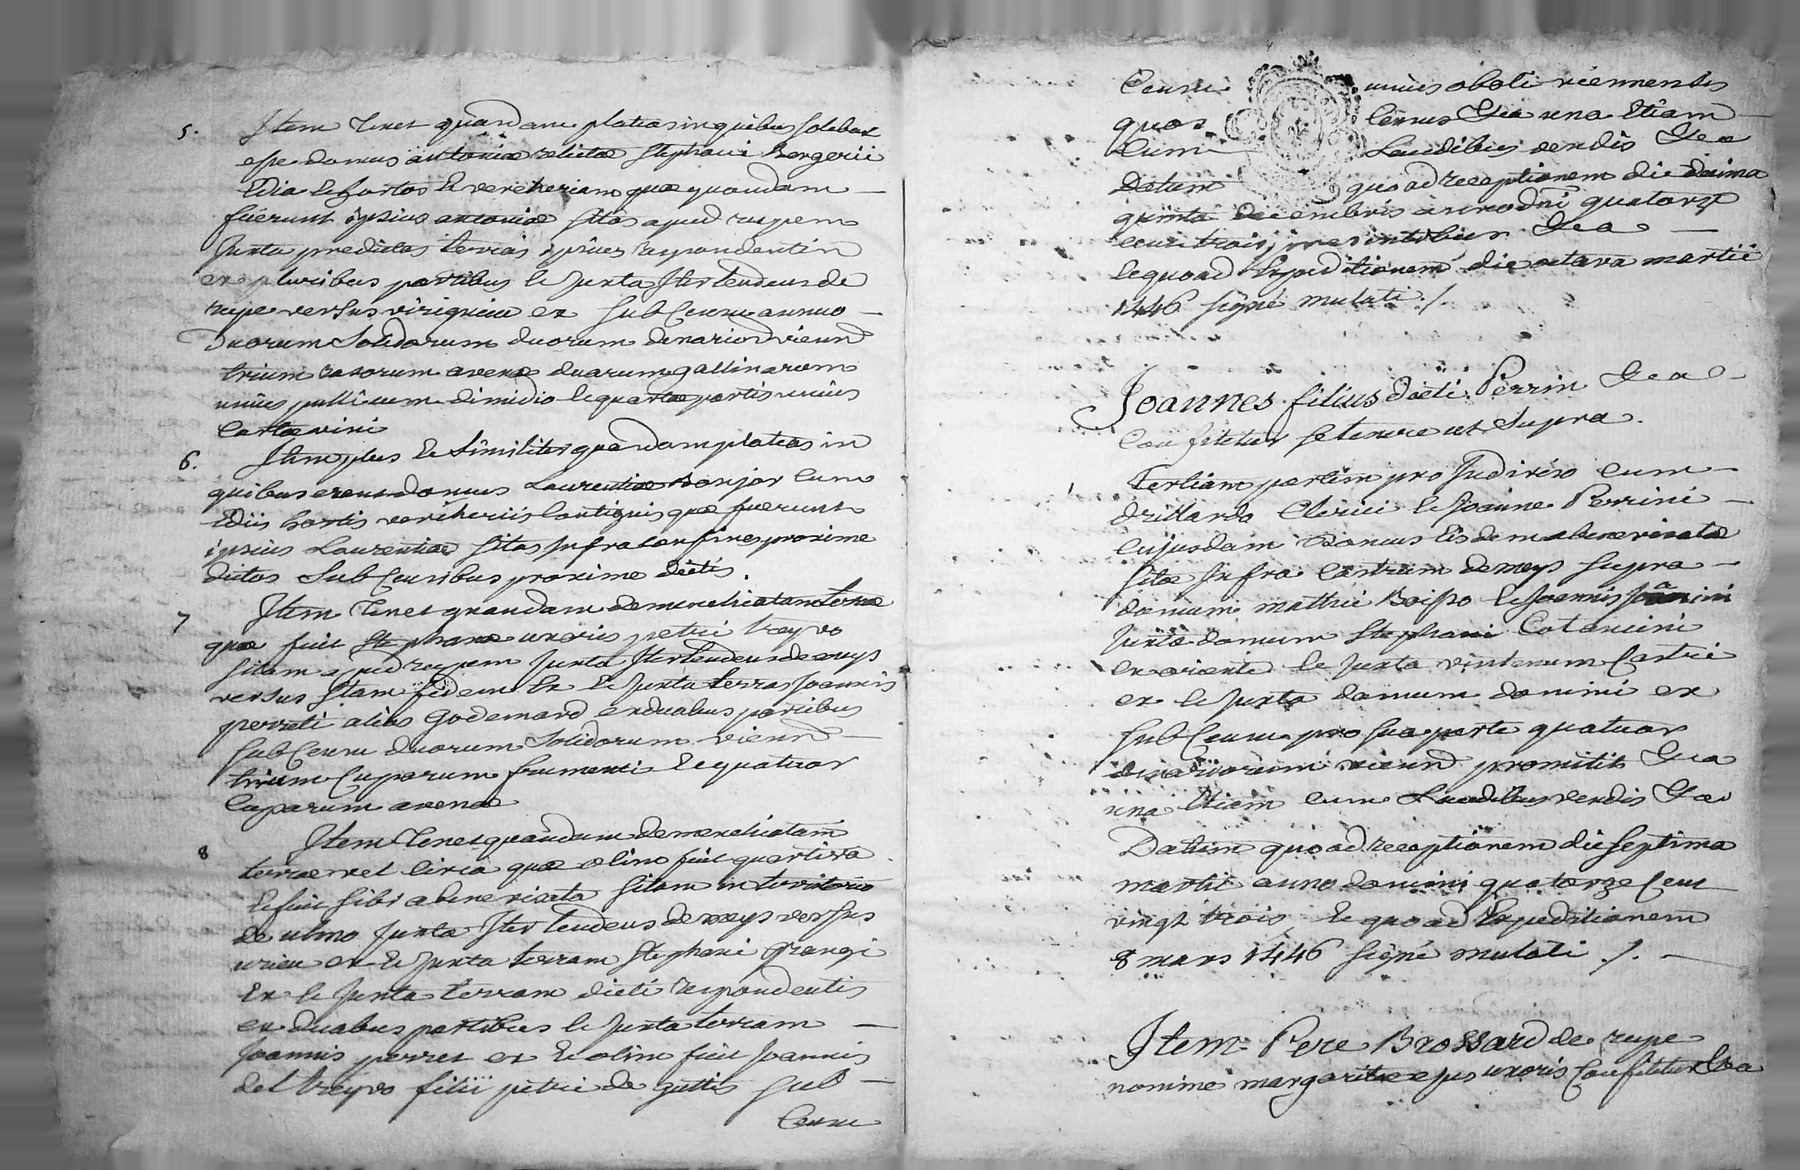 5. Item tenet quasdam plateas in quibus solebat
esse domus antoniæ relictæ stephani Bergerii
Edia et hortos et vercheriam quæ quondam —
fuerunt ipsius antoniæ sitas apud rupem
Juxta predictas terras ipsius respondentis
ex pluribus partibus et Juxta Iter tendens de
rupe versus virignieu ex sub Censu annuo —
Duorum Solidorum duorum denariord vienn
trium rasorum avenæ duarum gallinarum
unius pulli cum dimidio et quartæ partis unius
Cartæ vini
6. Item plus et similiter quasdam plateas in
quibus erant domus Laurentiæ Bonjor cum
Ediis hortis vercheriis contiguis quæ fuerunt
ipsius Laurentiæ sitas Infra confines proxime
dictos Sub Censibus proxime dictis.
7 Item tenet quandam demenchiatam terræ
quæ fuit stephanæ uxoris petri treyvo
sitam apud rupem Juxta Iter tendens de meys
versus stam fidem ex et Juxta terras Joannis
perreti alias Godemard ex duabus partibus
sub Censu duorum Solidorum vienn —
trium Cuparum frumenti et quatuor
Cuparum avenæ
8 Item tenet quandam demenchiatam
terræ vel circa quæ olim fuit quartiva
et fuit sibi abenevisata sitam in territorio
de ulmo Juxta Iter tendens de meys versus
urieu ex et Juxta terram stephani Grangi
Ex et Juxta terram dicti respondentis
ex duabus partibus et Juxta terram —
Joannis perret ex et olim fuit Joannis
del treyvo filii petri de guttis sub —
Censu
Censu unius oboli viennensis
quos Census &ea una Etiam —
Cum Laudibus vendis &ea
Datum quoad receptionem die decima
quinta decembris anno dni quatorze
cent trois, presentibus &ea —
et quoad Expeditionem die octava martii
1446 signé mulati ./
Joannes filius dicti Perrin &ea —
Confitetur se tenere ut Supra.
1 Tertiam partem pro Indiviso cum —
drillardo Clerici et Joanne Perrini —
Cujusdam domus eisdem abenevisatæ
sitæ Infra Castrum de meys supra —
domum mathei Boisso et Joannis Joannini
Juxta domum Stephani Cotancini
ex oriente et Juxta vintenum Castri
ex et Juxta domum domini ex
sub Censu pro sua parte quatuor
denariorum vienn promittit &ea
una Etiam cum Laudibus vendis &ea
Datum quoad receptionem die septima
martii anno domini quatorze Cent
vingt trois et quoad Expeditionem
8 mars 1446 signé mulati ./. —
Item Pere Brossard de rupe
nomine margaritæ ejus uxoris Confitetur &ea